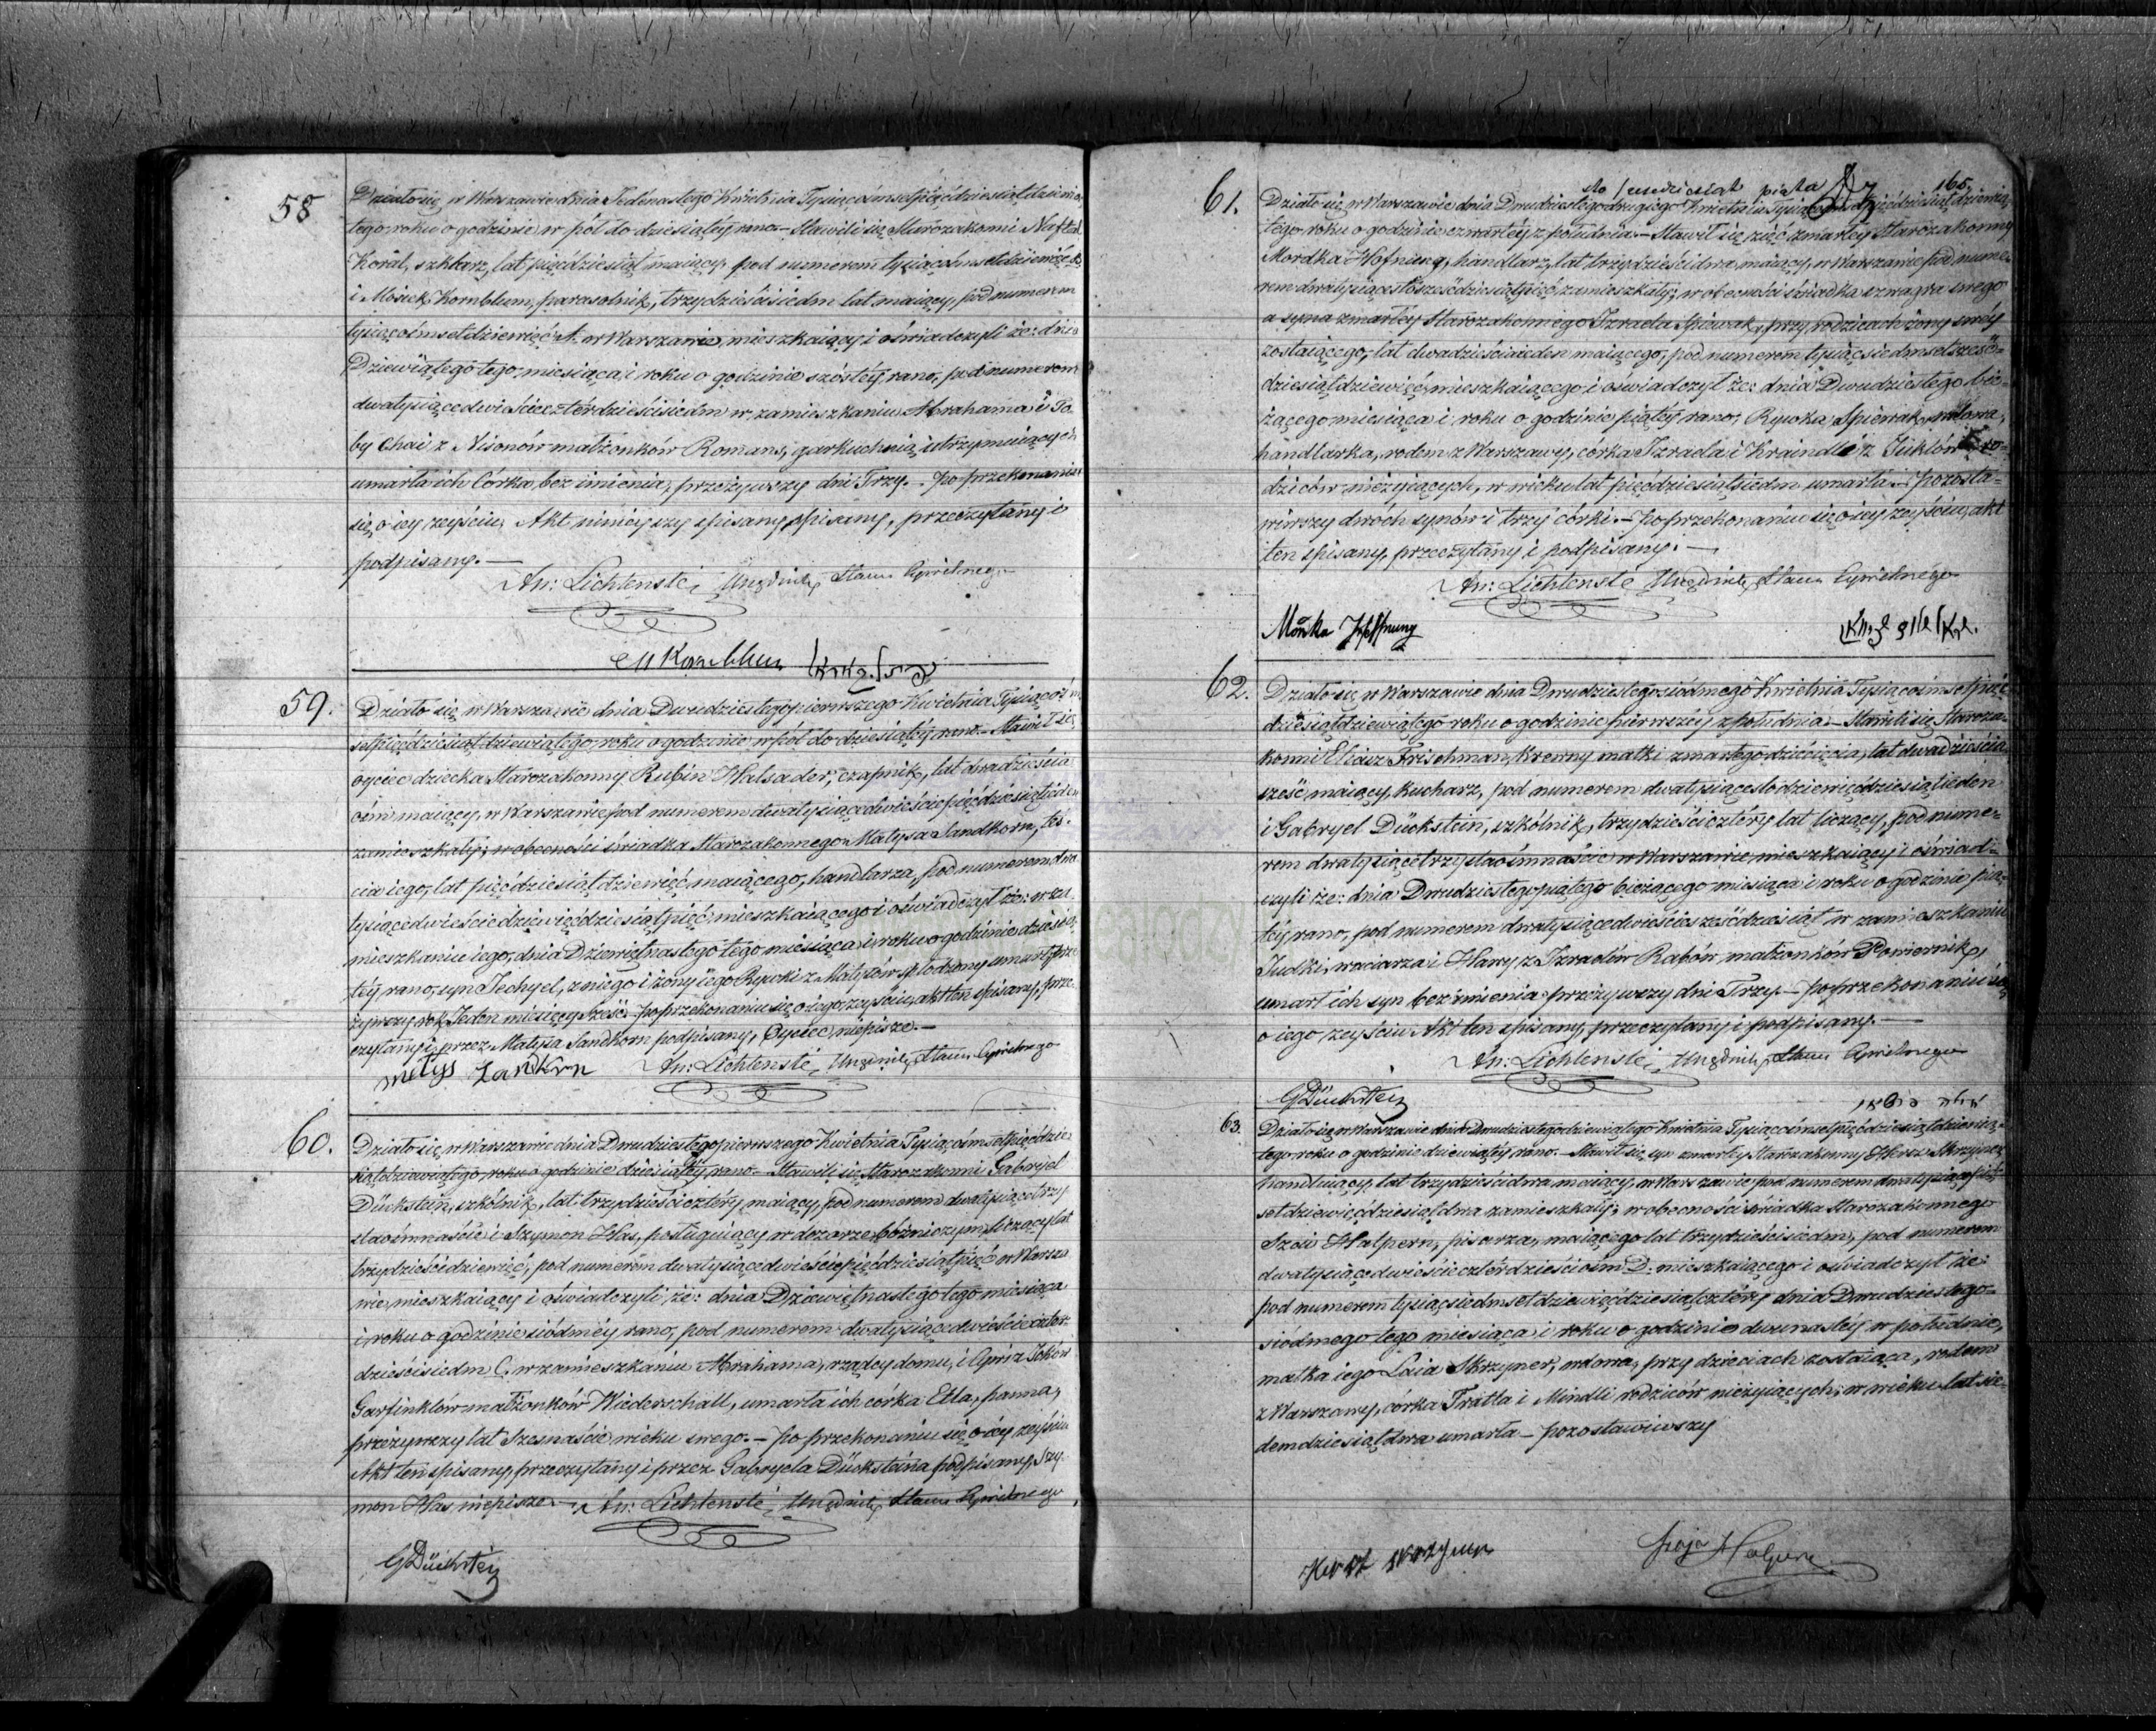 58
Działo się w Warszawie dnia Jedenastego Kwietnia Tysiącośmsetpięćdziesiątdziewią-
tego roku o godzinie w pół do dziesiątéy rano.- Stawili się Starozakonni Naftal
Koral, szklarz, lat pięćdziesiąt maiący pod numerem tysiącośmsetdziewięć A
i Mosiek Kornblum, parasolnik, trzydzieścisiedm lat maiący pod numerem
tysiącośmsetdziewięć A. w Warszawie mieszkaiący i oświadczyli że: dnia
Dziewiątego tego miesiąca i roku o godzinie szóstéy rano, pod numerem
dwatysiącedwieścieczterdzieścisiedm w zamieszkaniu Abrahama i To
by Chai z Nisonów małżonków Romans, garkuchnią utrzymuiących
umarła ich Córka bez imienia, przeżywszy dni Trzy.- Po przekonaniu
się o iey zeyściu, Akt ninieyszy spisany, spisany, przeczytany i
podpisany.-
An: Lichtenste, Urzędnik Stanu Cywilnego
M Kornblum
59.
Działo się w Warszawie dnia Dwudziestegopierwszego Kwietnia Tysiącośm
setpięćdziesiątdziewiątego roku o godzinie w pół do dziesiątéy rano.- Stawił się
oyciec dziecka Starozakonny Rubin Halsader, czapnik, lat dwadzieścia
ośm maiący, w Warszawie pod numerem dwatysiącedwieściepięćdziesiątieden
zamieszkały; w obecności świadka Starozakonnego Matysa Sandkorn, teś-
cia iego, lat pięćdziesiątdziewięć maiącego, handlarza, pod numerem dwa
tysiącedwieściedziewięćdziesiątpięć mieszkaiącego i oświadczył że: w za
mieszkaniu iego, dnia Dziewiętnastego tego miesiąca i roku o godzinie dziesią
téy rano, syn Jechyel, z niego i żony iego Rywki z Matysów spłodzony umarł prze
żywszy rok Jeden miesięcy Sześć.- Po przekonaniu się o iego zeyściu, akt ten spisany, prze
czytany i przez Matysa Sandkorn podpisany, Oyciec niepisze.-
An: Lichtenste, Urzędnik Stanu Cywilnego
60.
Działo się w Warszawie dnia Dwudziestegopierwszego Kwietnia Tysiącośmsetpięćdzie
siątdziewiątego roku o godzinie dziesiątéy rano.- Stawili się Starozakonni Gabryel
Dückstein, szkólnik, lat trzydzieścicztéry maiący, pod numerem dwatysiącetrzy
staośmnaście i Szymon Has, posługuiący w dozorze bóżniczym, liczący lat
trzydzieścidziewięć, pod numerem dwatysiącedwieściepięćdziesiątpięć w Warsza
wie mieszkaiący i oświadczyli że: dnia Dziewiętnastego tego miesiąca
i roku o godzinie siódméy rano, pod numerem dwatysiącedwieścieczter
dzieścisiedm C, w zamieszkaniu Abrahama, rządcy domu, i Cywi z Icków
Garfinklów małżonków Wiederschall, umarła ich córka Etla, panna,
przeżywszy lat Szesnaście wieku swego.- Po przekonaniu się o iey zeyściu
Akt ten spisany, przeczytany i przez Gabryela Dückstéina podpisany, Szy-
mon Has niepisze.- An: Lichtenste, Urzędnik Stanu Cywilnego
GDückstein
sto piąta 165
61.
Działo się w Warszawie dnia Dwudziestegodrugiego Kwietnia Tysiącośmsetpięćdziesiątdziewią
tego roku o godzinie czwartéy z południa.- Stawił się zięć zmarłey Starozakonny
Mordka Hofnung, handlarz, lat trzydzieścidwa maiący, w Warszawie pod nume-
rem dwatysiącestosześćdziesiątpięć zamieszkały; w obecności świadka szwagra swego
a syna zmarłey Starozakonnego Izraela Śpiewak, przy rodzicach żony swéy
zostaiącego, lat dwadzieściaieden maiącego, pod numerem tysiącsiedmsetsześć-
dziesiątdziewięć mieszkaiącego i oświadczył że: dnia Dwudziestego bie-
żącego miesiąca i roku o godzinie piątéy rano, Rywka Śpiewak, wdowa,
handlarka, rodem z Warszawy, córka Izraela i Kraindli z Joklów ro-
dziców nieżyiących, w wieku lat pięćdziesiątsiedm umarła.- Pozosta-
wiwszy dwóch synów i trzy córki.- Po przekonaniu się o iey zeyściu, akt
ten spisany, przeczytany i podpisany.-
An: Lichtenste, Urzędnik Stanu Cywilnego
62.
Działo się w Warszawie dnia Dwudziestegosiódmego Kwietnia Tysiącośmsetpięć
dziesiątdziewiątego roku o godzinie pierwszéy z południa.- Stawili się Staroza-
konni Eliasz Frischman, krewny matki zmarłego dziecięcia, lat dwadzieścia
sześć maiący, kucharz, pod numerem dwatysiącestodziewięćdziesiątieden
i Gabryel Dückstein, szkólnik, trzydzieścicztéry lat liczący, pod nume-
rem dwatysiącetrzystaośmnaście w Warszawie mieszkaiący i oświad-
czyli że: dnia Dwudziestegopiątego bieżącego miesiąca i roku o godzinie pią-
téy rano, pod numerem dwatysiącedwieściesześćdziesiąt w zamieszkaniu
Judki, waciarza i Hawy z Izraelów Rabów małżonków Powiernik,
umarł ich syn bez imienia przeżywszy dni Trzy.- Po przekonaniu się
o iego zeyściu Akt ten spisany, przeczytany i podpisany.-
An: Lichtenste, Urzędnik Stanu Cywilnego
GDückstein
63.
Działo się w Warszawie dnia Dwudziestegodziewiątego Kwietnia Tysiącośmsetpięćdziesiątdziewią-
tego roku o godzinie dziewiątéy rano.- Stawił się syn zmarłey Starozakonny Hersz Skrzyner
handluiący, lat trzydzieścidwa maiący, w Warszawie pod numerem dwatysiące
setdziewięćdziesiątdwa zamieszkały; w obecności świadka Starozakonnego
Szai Halpern, pisarza, maiącego lat trzydzieścisiedm, pod numerem
dwatysiącedwieścieczterdzieściośm D. mieszkaiącego i oświadczył że:
pod numerem tysiącsiedmsetdziewięćdziesiątcztéry dnia Dwudziestego-
siódmego tego miesiąca i roku o godzinie dwunastéy w południe,
matka iego Laia Skrzyner, wdowa, przy dzieciach zostaiąca, rodem
z Warszawy, córka Fratla i Mindli rodziców nieżyiących, w wieku lat sie-
demdziesiątdwa umarła.- Pozostawiwszy
Szaja Halpern